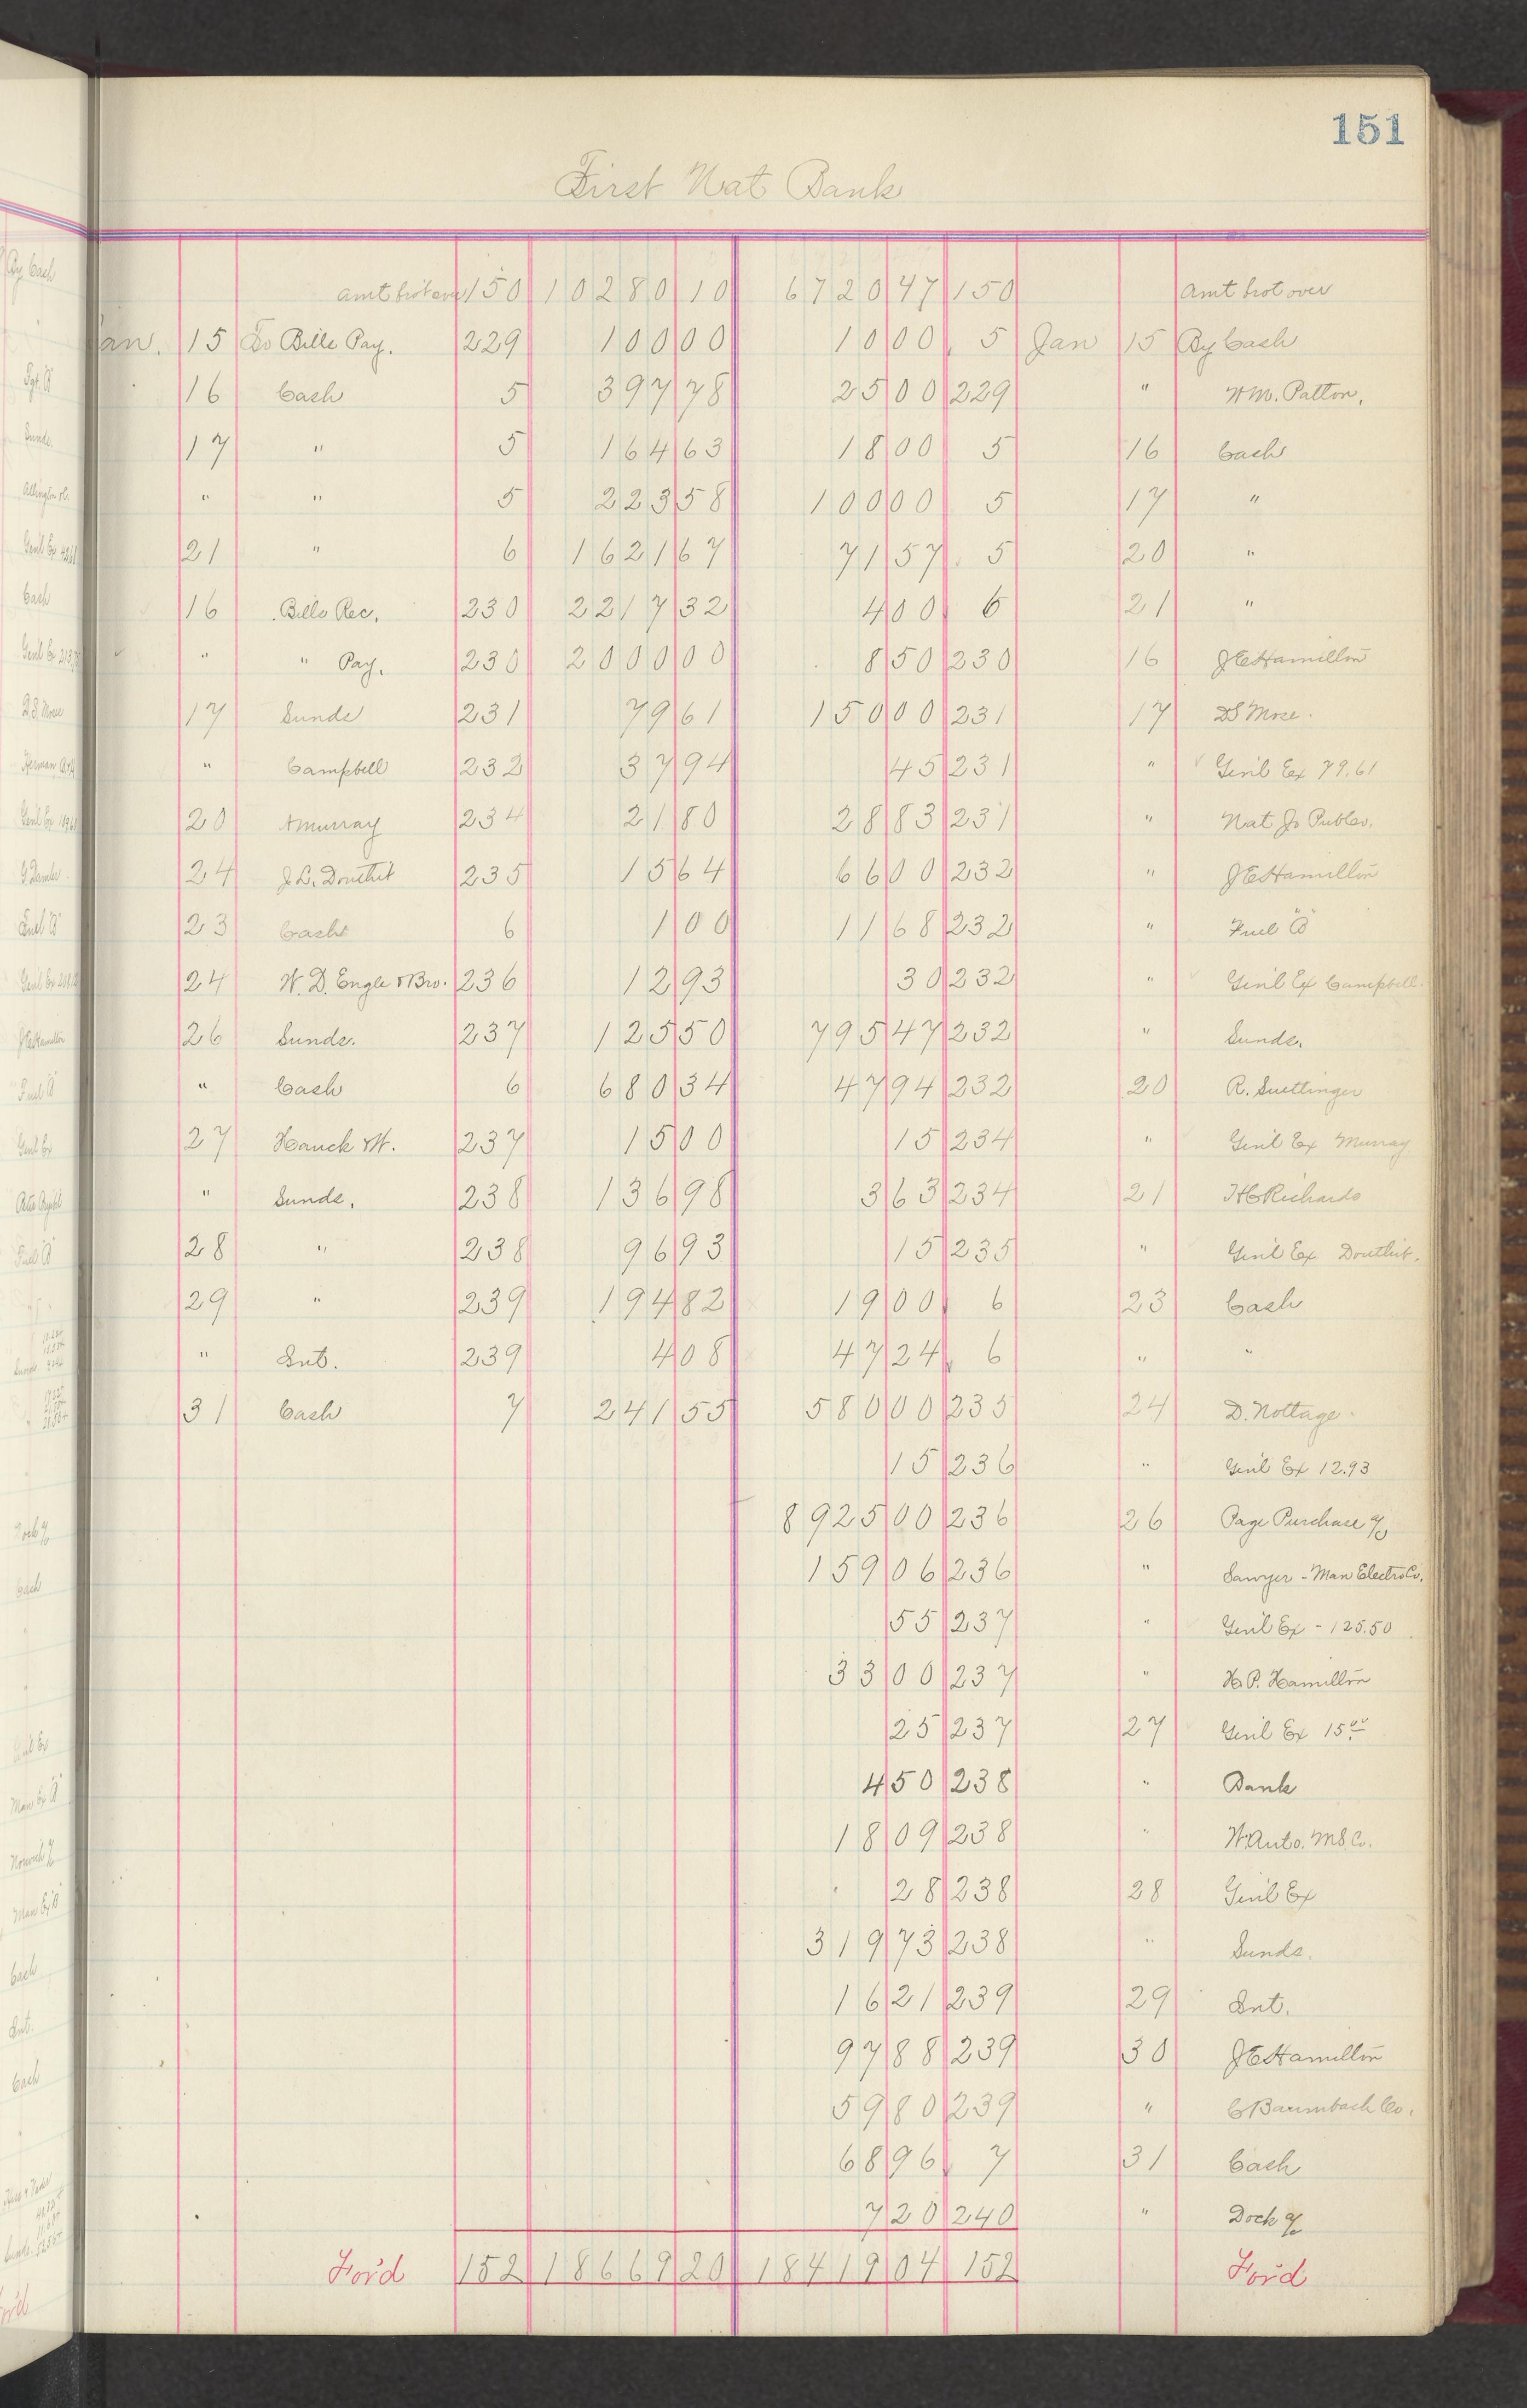 151
First Nat Bank
amt brot over 150 10280 10 6720 47 150 amt brot over
Jan. 15 To Bills Pay. 229 100 00 10 00 5 Jan 15 By Cash
16 Cash 5 397 78 25 00 229 " Wm. Patton.
17 " 5 164 63 18 00 5 16 Cash
" " 5 223 58 100 00 5 17 "
21 " 6 1621 67 71 57 5 20 "
16 Bills Rec. 230 2217 32 4 00 6 21 "
" " Pay. 230 2000 00 8 50 230 16 J E Hamilton
17 Sunds 231 79 61 150 00 231 17 D S Mose.
" Campbell 232 37 94 45 231 " Gen'l Ex 79.61
20 Murray 234 21 80 28 83 231 " Nat Jo Publrs.
24 J. L. Douthit 235 15 64 66 00 232 " J E Hamilton
23 Cash 6 1 00 11 68 232 " Fuel "B"
24 W. D. Engle & Bro. 236 12 93 30 232 " Gen'l Ex Campbell.
26 Sunds. 237 125 50 795 47 232 " Sunds.
" Cash 6 680 34 47 94 232 20 R. Suettinger
27 Hauck & W. 237 15 00 15 234 " Gen'l Ex Murray
" Sunds. 238 136 98 3 63 234 21 H C Richards
28 " 238 96 93 15 235 " Gen'l Ex Douthit.
29 " 239 194 82 19 00 6 23 Cash
" Int. 239 4 08 47 24 6 " "
31 Cash 7 241 55 580 00 235 24 D. Nottage.
15 236 " Gen'l Ex 12.93
8925 00 236 26 Page Purchase a/c
159 06 236 " Sawyer - Man Electro Co.
55 237 " Gen'l Ex - 125.50
33 00 237 " H. P. Hamilton
25 237 27 Gen'l Ex 15.00
4 50 238 " Bank
18 09 238 " W. Auto. M S Co.
28 238 28 Gen'l Ex
319 73 238 " Sunds.
16 21 239 29 Int.
97 88 239 30 J E Hamilton
59 80 239 " C Baumbach Co.
68 96 7 31 Cash
7 20 240 " Dock a/c
For'd 152 18669 20 18419 04 152 For'd